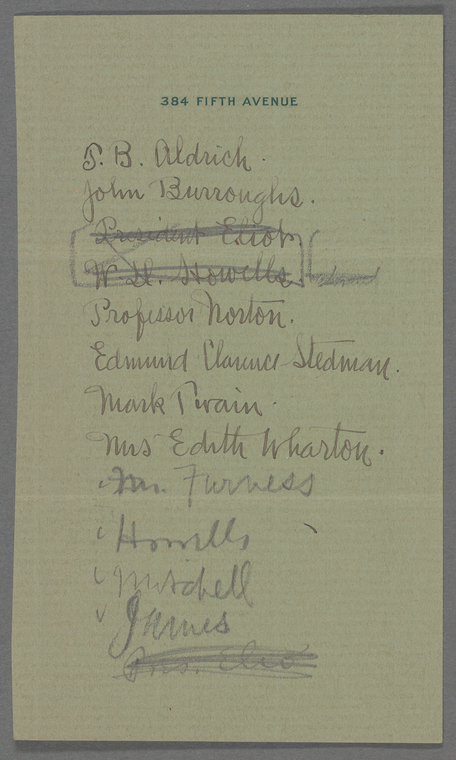 384 FIFTH AVENUE
T. B. Aldrich.
John Burroughs.
President Eliot
W. D. Howells.
Professor Norton.
Edmund Clarence Stedman.
Mark Twain.
Mrs Edith Wharton.
Mr. Furness
Howells
Mitchell
James
Pres. Eliot